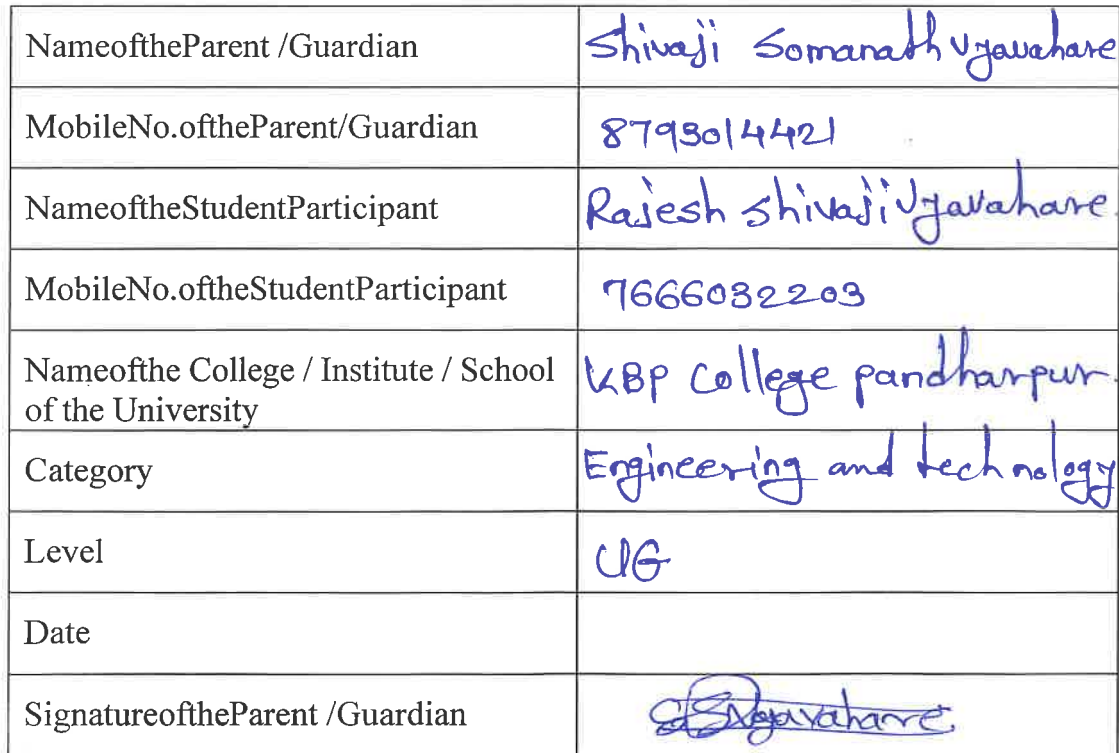 NameoftheParent /Guardian Shivaji Somanath Vyavahare
MobileNo.oftheParent/Guardian 8793014421
NameoftheStudentParticipant Rajesh Shivaji Vyavahare
MobileNo.oftheStudentParticipant 7666032203
Nameofthe College / Institute / School KBP College pandharpur.
of the University
Category Engineering and technology
Level UG
Date
SignatureoftheParent /Guardian Vyavahare